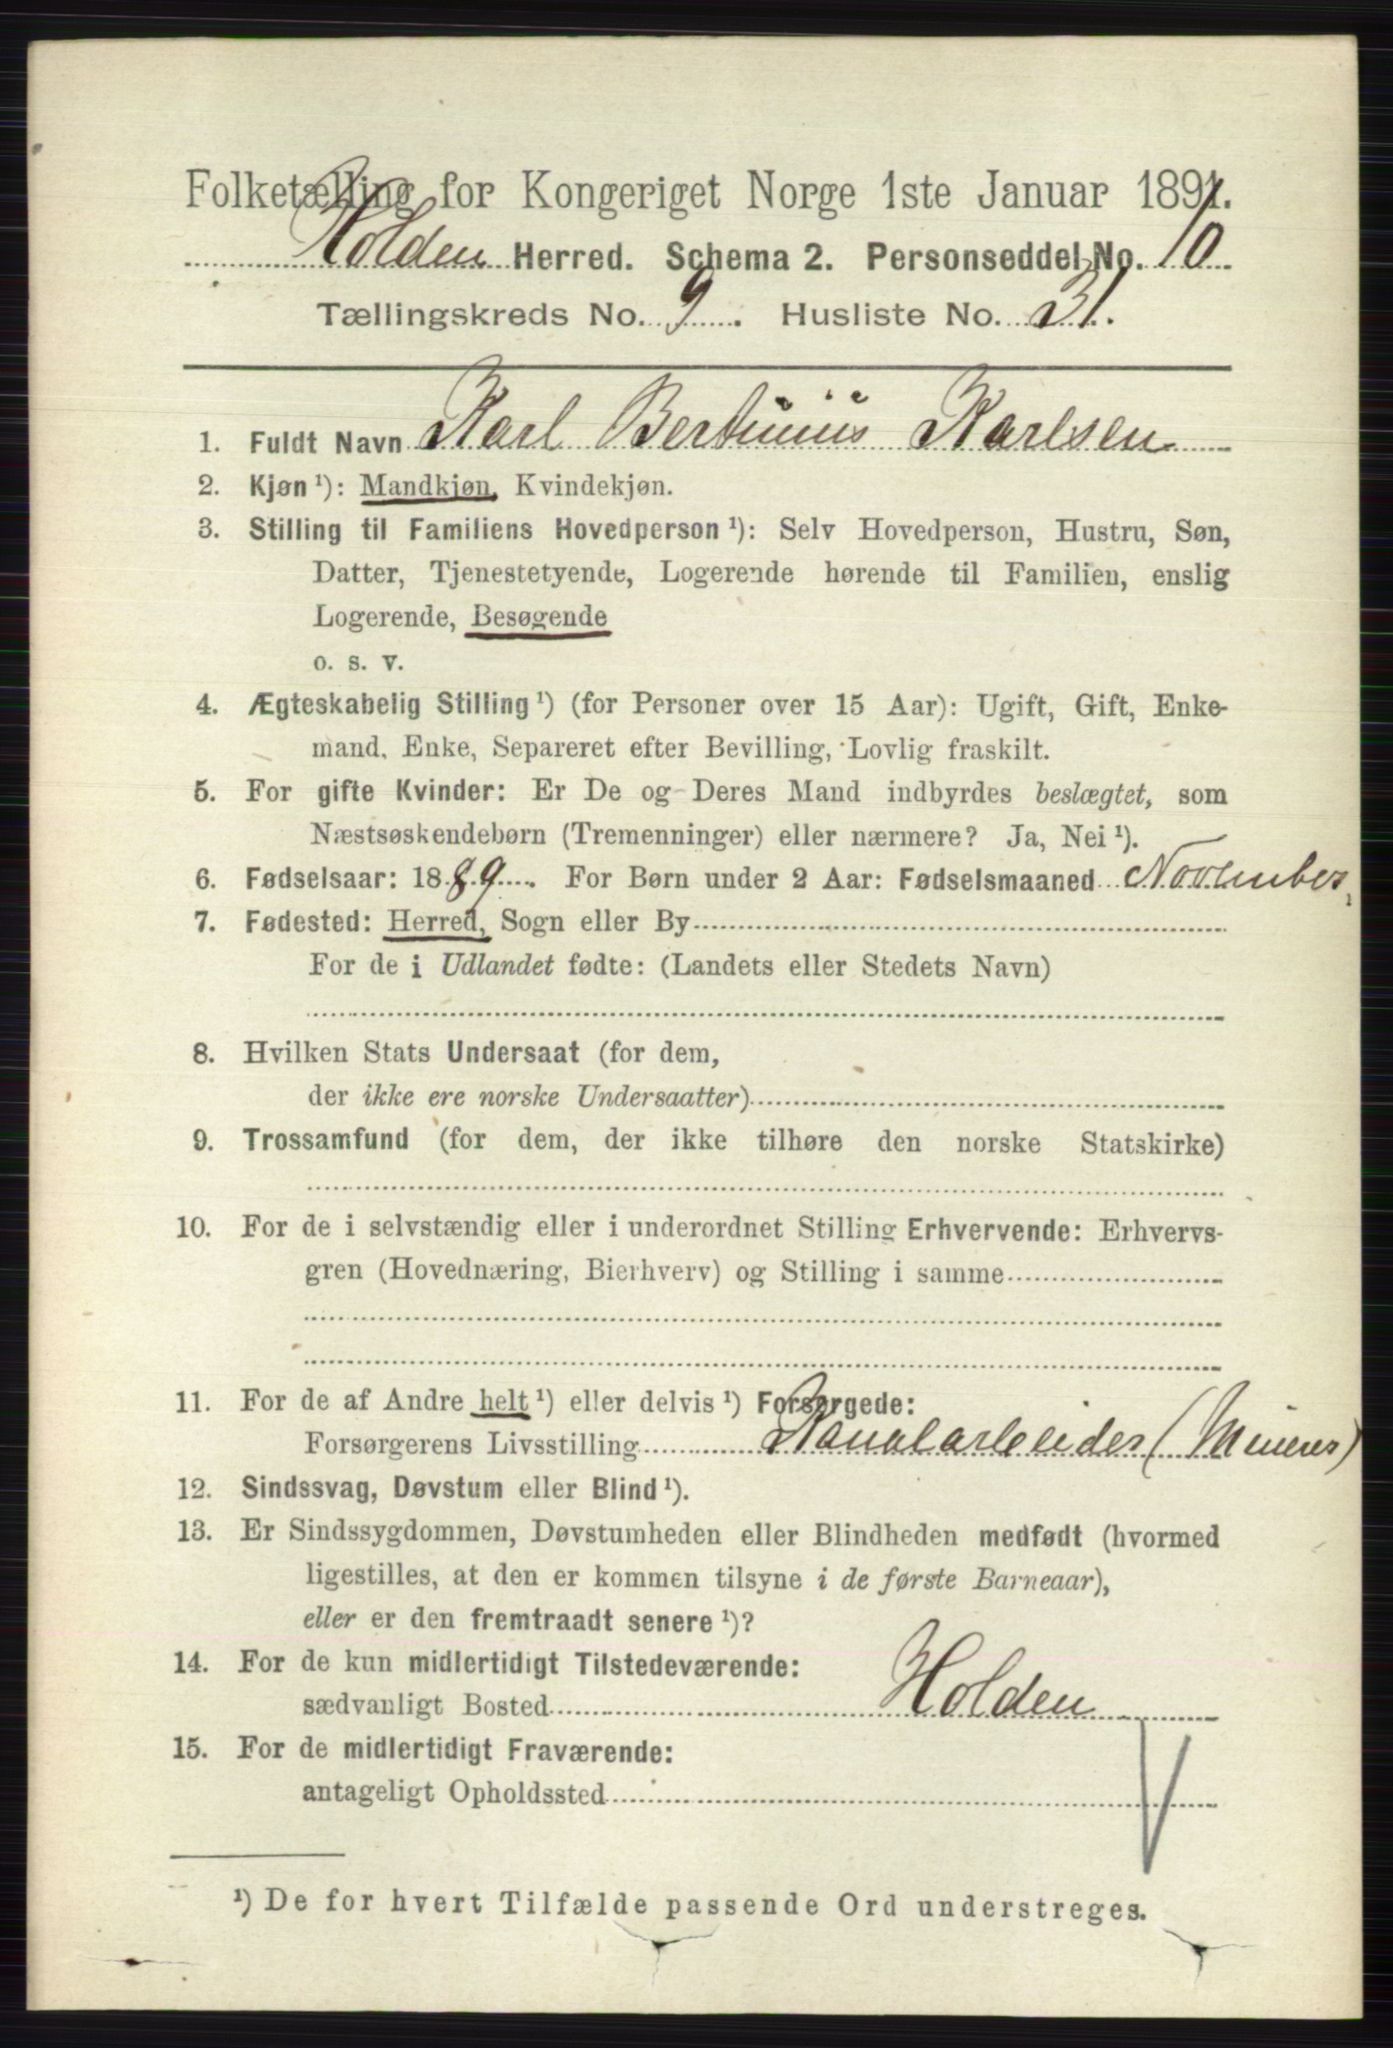 Folketælling for Kongeriget Norge 1ste Januar 1891.
Holden Herred. Schema 2. Personseddel No. 10
Tællingskreds No. 9. Husliste No. 31.
1. Fuldt Navn Karl Bertinius Karlsen
2. Kjøn ¹): Mandkjøn, Kvindekjøn.
3. Stilling til Familiens Hovedperson ¹): Selv Hovedperson, Hustru, Søn,
Datter, Tjenestetyende, Logerende hørende til Familien, enslig
Logerende, Besøgende
o. s. v.
4. Ægteskabelig Stilling ¹) (for Personer over 15 Aar): Ugift, Gift, Enke-
mand, Enke, Separeret efter Bevilling, Lovlig fraskilt.
5. For gifte Kvinder: Er De og Deres Mand indbyrdes beslægtet, som
Næstsøskendebørn (Tremenninger) eller nærmere? Ja, Nei ¹).
6. Fødselsaar: 1889. For Børn under 2 Aar: Fødselsmaaned November,
7. Fødested: Herred, Sogn eller By
For de i Udlandet fødte: (Landets eller Stedets Navn)
8. Hvilken Stats Undersaat (for dem,
der ikke ere norske Undersaatter)
9. Trossamfund (for dem, der ikke tilhøre den norske Statskirke)
10. For de i selvstændig eller i underordnet Stilling Erhvervende: Erhvervs-
gren (Hovednæring, Bierhverv) og Stilling i samme
11. For de af Andre helt ¹) eller delvis ¹) Forsørgede:
Forsørgerens Livsstilling Kanalarbeider (Minerer)
12. Sindssvag, Døvstum eller Blind ¹).
13. Er Sindssygdommen, Døvstumheden eller Blindheden medfødt (hvormed
ligestilles, at den er kommen tilsyne i de første Barneaar),
eller er den fremtraadt senere ¹)?
14. For de kun midlertidigt Tilstedeværende:
sædvanligt Bosted Holden
15. For de midlertidigt Fraværende:
antageligt Opholdssted
¹) De for hvert Tilfælde passende Ord understreges.